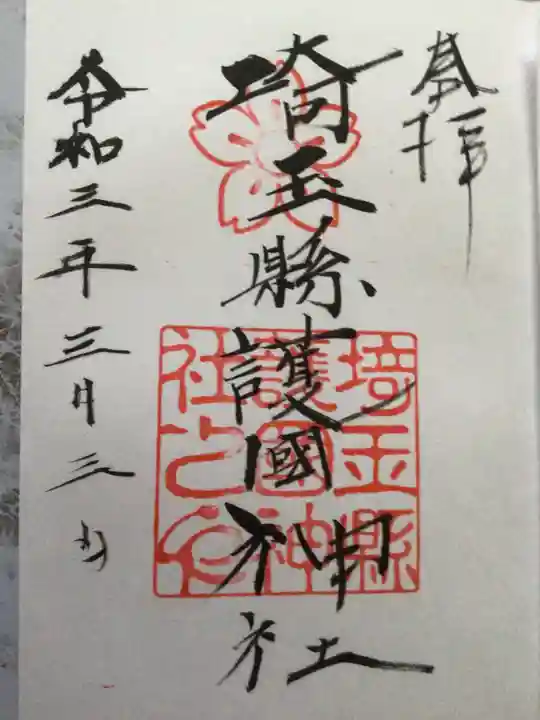 奉拝
埼玉縣護國神社
埼玉縣
護國神
社之印
令和三年三月三日